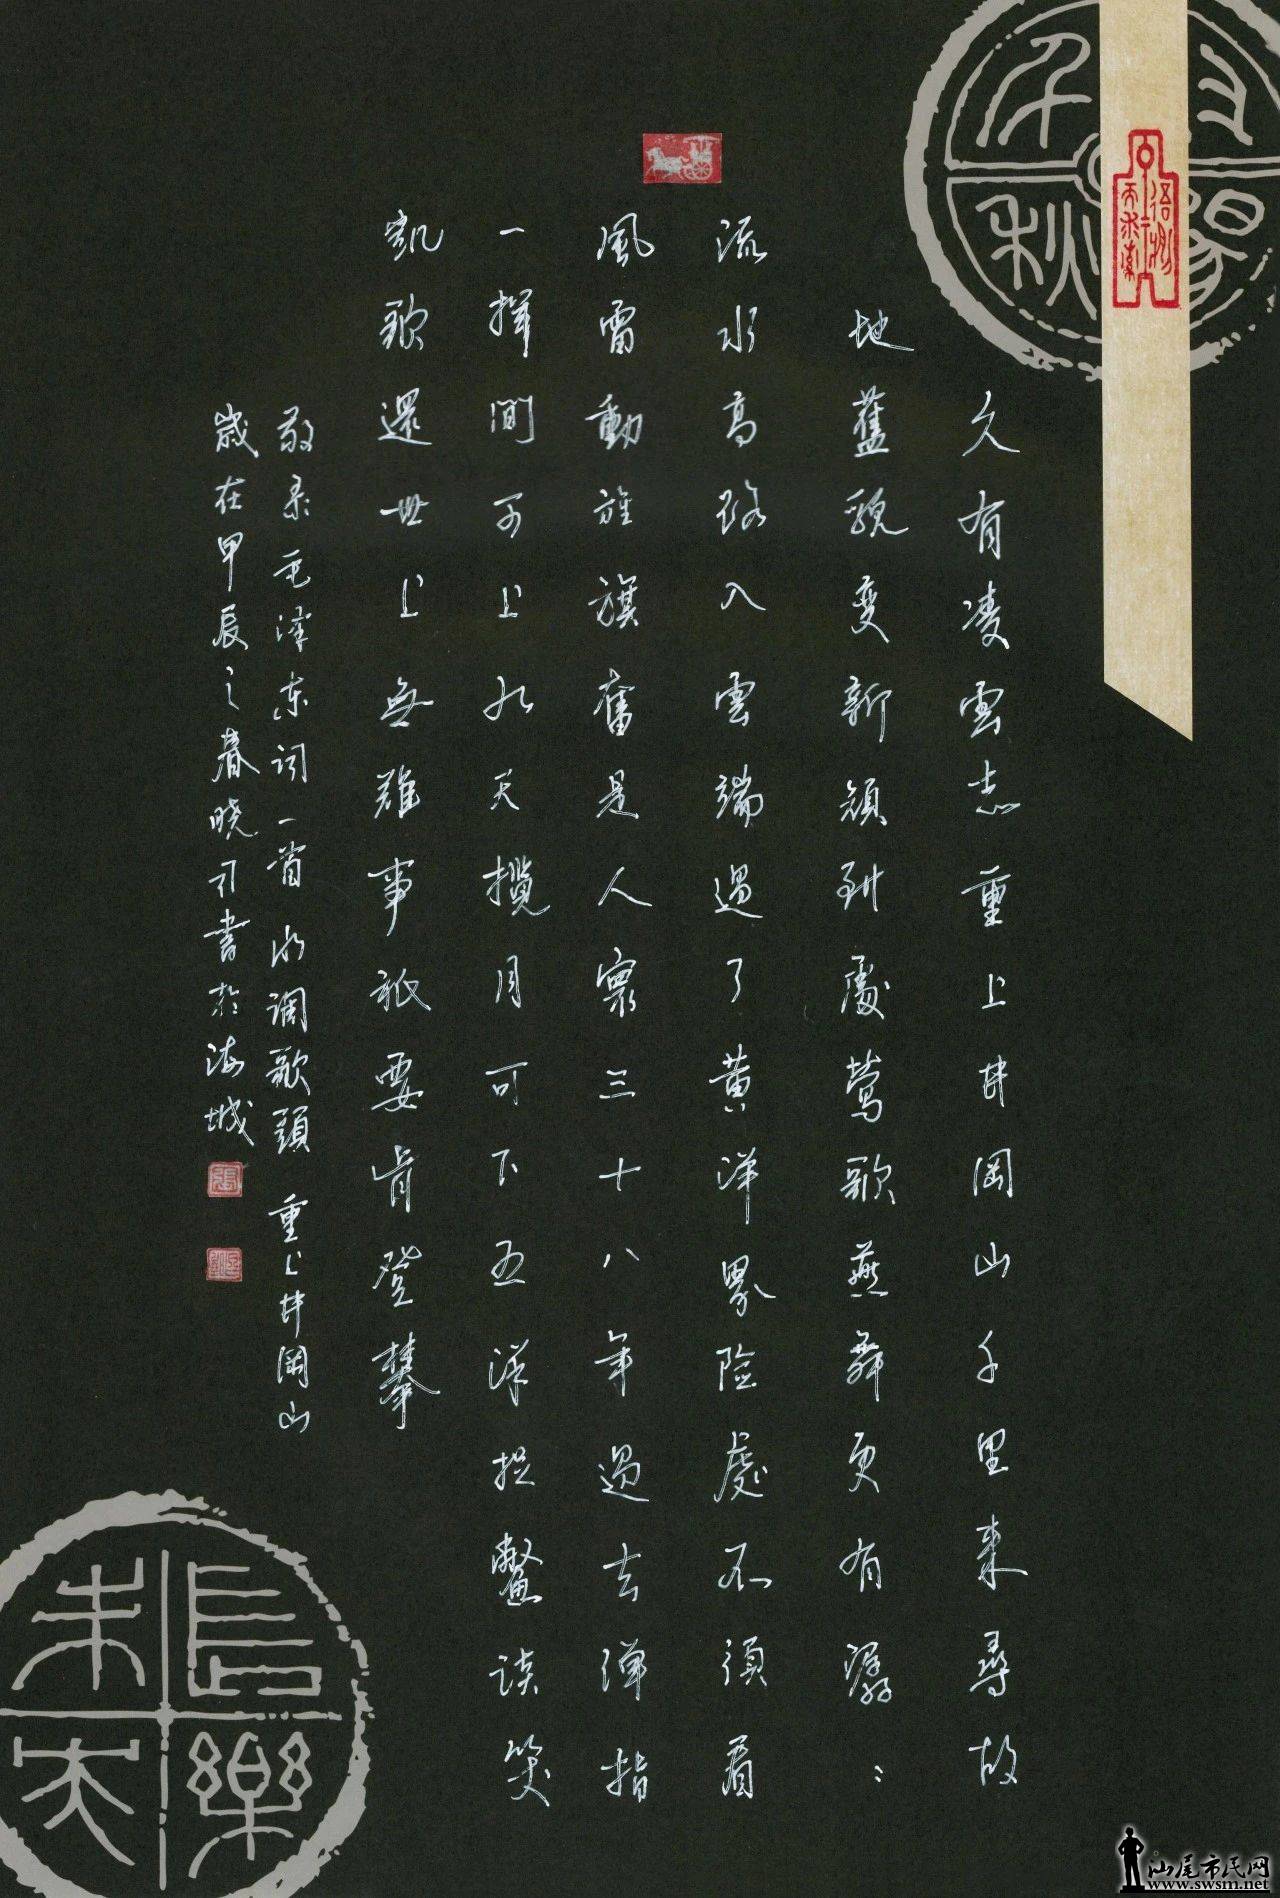 久有凌雲志重上井岡山千里来尋故
地舊貌变新顔到處莺歌燕舞更有潺：
流水高路入雲端過了黄洋界险處不須看
風雷動旌旗奮是人寰三十八年過去弹指
一揮间可上九天攬月可下五洋捉鱉谈笑
凱歌還世上無難事祇要肯登攀
敬录毛泽东词一首水调歌頭 重上井岡山
歲在甲辰之春晓書於海城
張
千秋
長樂未央
汕尾市民网
www.swsm.net